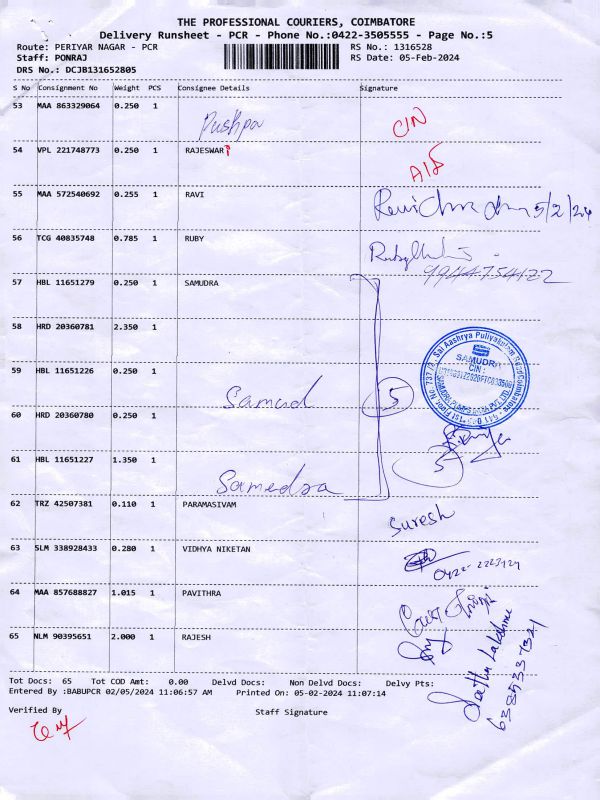 THE PROFESSIONAL COURIERS, COIMBATORE
Delivery Runsheet - PCR - Phone No.:0422-3505555 - Page No.:5
Route: PERIYAR NAGAR - PCR RS No.: 1316528
Staff: PONRAJ RS Date: 05-Feb-2024
DRS No.: DCJB131652805
S No Consignment No Weight PCS Consignee Details Signature
53 MAA 863329064 0.250 1 Pushpa CIN
54 VPL 221748773 0.250 1 RAJESWARI
55 MAA 572540692 0.255 1 RAVI 5/2/24
56 TCG 40835748 0.785 1 RUBY Ruby
9944754122
57 HBL 11651279 0.250 1 SAMUDRA
58 HRD 20360781 2.350 1
59 HBL 11651226 0.250 1 Samud 5
SAMUDRA
CIN:
60 HRD 20360780 0.250 1
61 HBL 11651227 1.350 1 Samedra 5
62 TRZ 42507381 0.110 1 PARAMASIVAM Suresh
63 SLM 338928433 0.280 1 VIDHYA NIKETAN
64 MAA 857688827 1.015 1 PAVITHRA
65 NLM 90395651 2.000 1 RAJESH
Tot Docs: 65 Tot COD Amt: 0.00 Delvd Docs: Non Delvd Docs: Delvy Pts:
Entered By :BABUPCR 02/05/2024 11:06:57 AM Printed On: 05-02-2024 11:07:14
Verified By Staff Signature